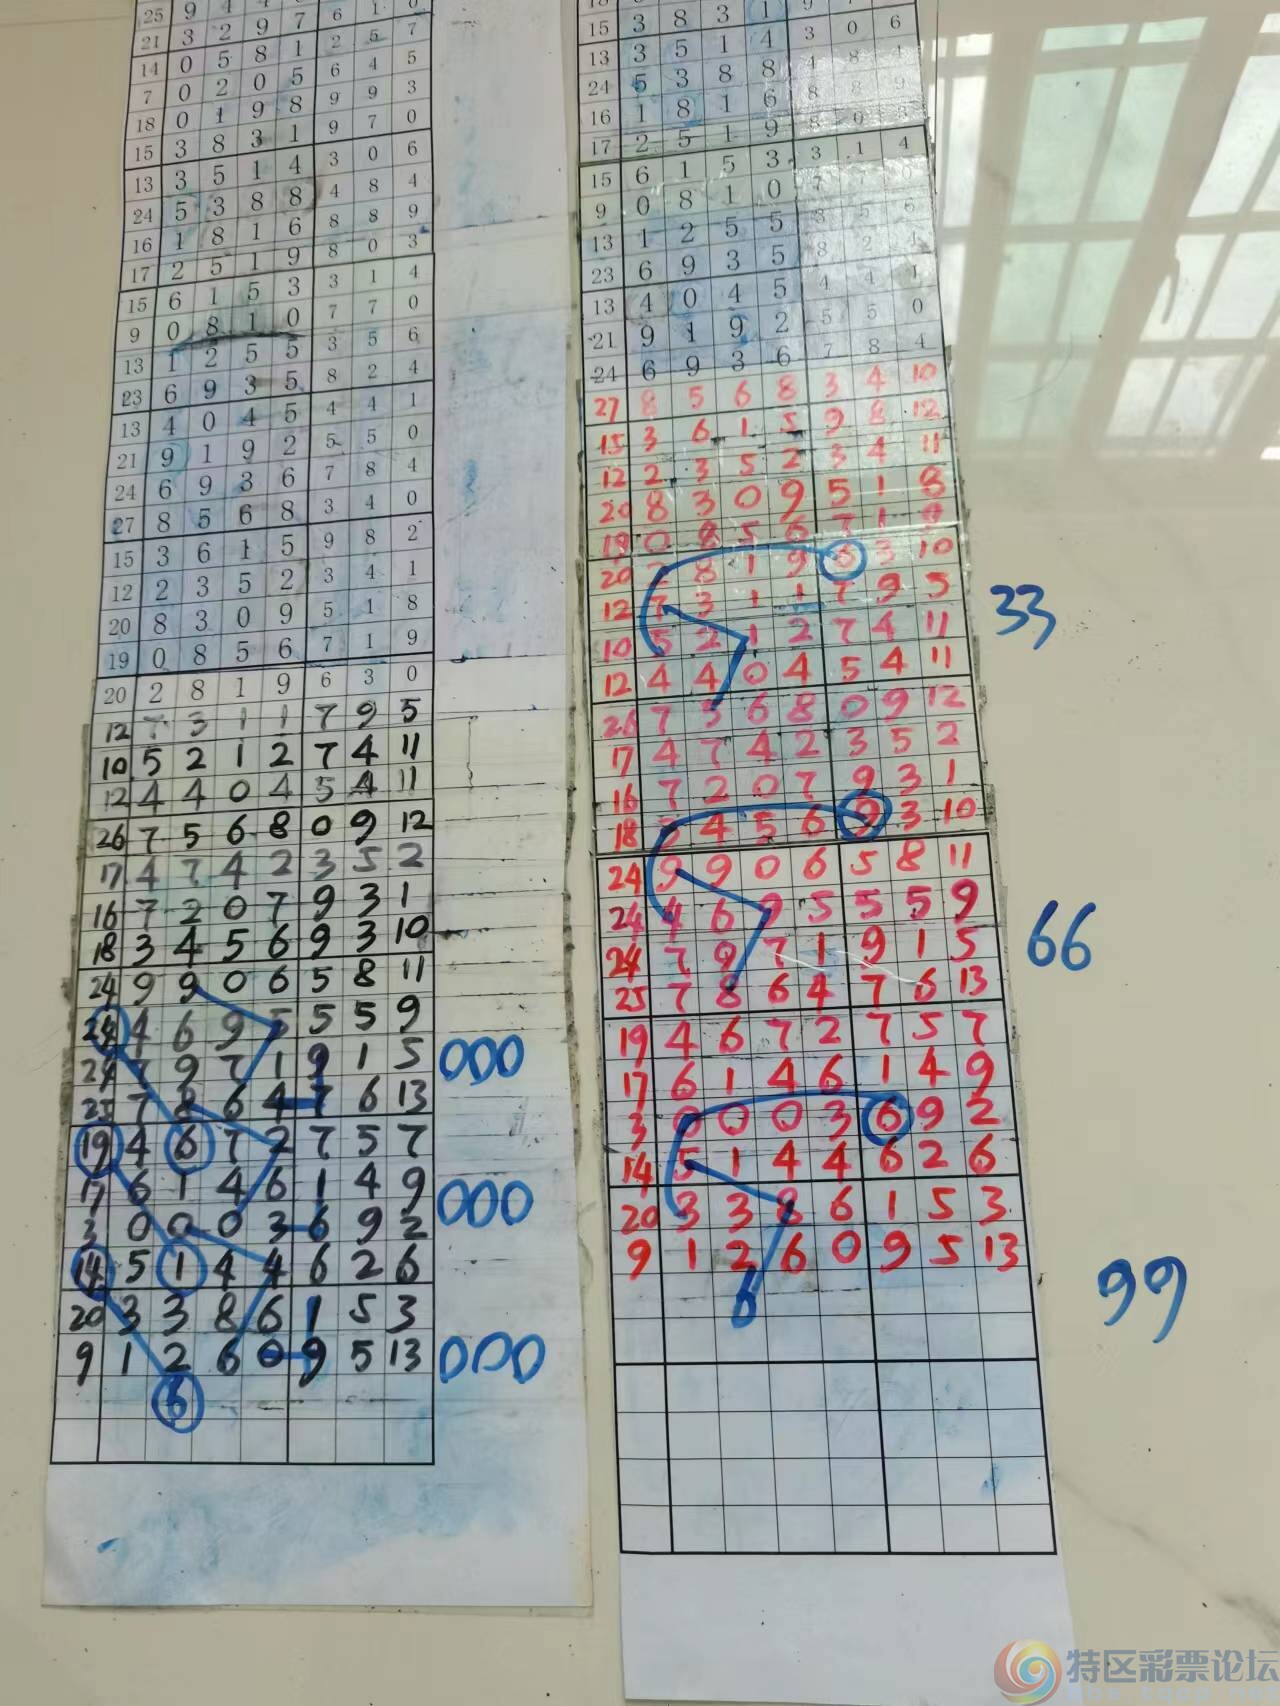 21 3 2 9 7 6 1 0
14 0 5 8 1 2 5 7
7 0 2 0 5 6 4 5
18 0 1 9 8 9 9 3
15 3 8 3 1 9 7 0
13 3 5 1 4 3 0 6
24 5 3 8 8 4 8 4
16 1 8 1 6 8 8 9
17 2 5 1 9 8 0 3
15 6 1 5 3 3 1 4
9 0 8 1 0 7 7 0
13 1 2 5 5 3 5 6
23 6 9 3 5 8 2 4
13 4 0 4 5 4 4 1
21 9 1 9 2 5 5 0
24 6 9 3 6 7 8 4
27 8 5 6 8 3 4 0
15 3 6 1 5 9 8 2
12 2 3 5 2 3 4 1
20 8 3 0 9 5 1 8
19 0 8 5 6 7 1 9
20 2 8 1 9 6 3 0
12 7 3 1 1 7 9 5
10 5 2 1 2 7 4 11
12 4 4 0 4 5 4 11
26 7 5 6 8 0 9 12
17 4 7 4 2 3 5 2
16 7 2 0 7 9 3 1
18 3 4 5 6 9 3 10
24 9 9 0 6 5 8 11
24 4 6 9 5 5 5 9
24 7 9 7 1 9 1 5 000
25 7 8 6 4 7 6 13
19 4 6 7 2 7 5 7
17 6 1 4 6 1 4 9 000
3 0 0 0 3 6 9 2
14 5 1 4 4 6 2 6
20 3 3 8 6 1 5 3
9 1 2 6 0 9 5 13 000
6
15 3 8 3 1 9
13 3 5 1 4 3 0 6
24 5 3 8 8 4 8 4
16 1 8 1 6 8 8 9
17 2 5 1 9 8 0 3
15 6 1 5 3 3 1 4
9 0 8 1 0 7 7 0
13 1 2 5 5 3 5 6
23 6 9 3 5 8 2 4
13 4 0 4 5 4 4 1
21 9 1 9 2 5 5 0
24 6 9 3 6 7 8 4
27 8 5 6 8 3 4 10
15 3 6 1 5 9 8 12
12 2 3 5 2 3 4 11
20 8 3 0 9 5 1 8
19 0 8 5 6 7 1 9
20 2 8 1 9 6 3 10
12 7 3 1 1 7 9 5 33
10 5 2 1 2 7 4 11
12 4 4 0 4 5 4 11
26 7 5 6 8 0 9 12
17 4 7 4 2 3 5 2
16 7 2 0 7 9 3 1
18 3 4 5 6 9 3 10
24 9 9 0 6 5 8 11
24 4 6 9 5 5 5 9 66
24 7 9 7 1 9 1 5
25 7 8 6 4 7 6 13
19 4 6 7 2 7 5 7
17 6 1 4 6 1 4 9
3 0 0 0 3 6 9 2
14 5 1 4 4 6 2 6
20 3 3 8 6 1 5 3
9 1 2 6 0 9 5 13 99
6
特区彩票论坛